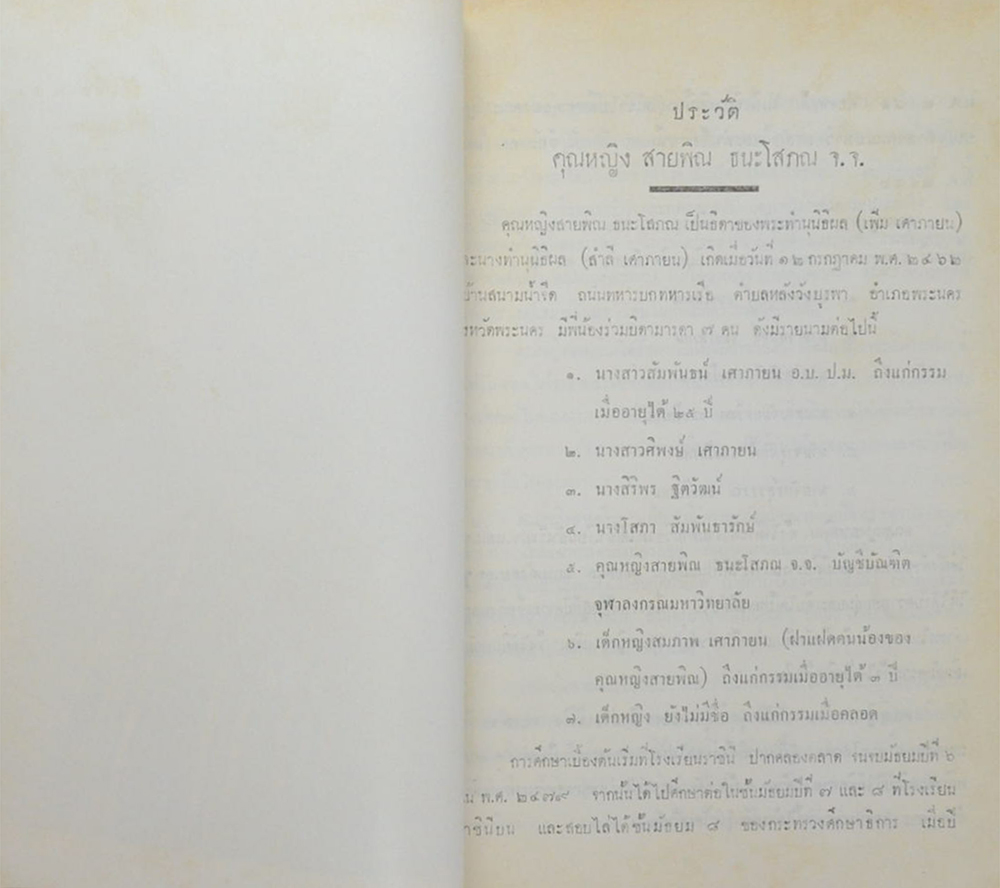 ประวัติ
คุณหญิง สายพิณ ธนะโสภณ จ.จ.
คุณหญิงสายพิณ ธนะโสภณ เป็นธิดาของพระทำนุนิธิผล (เพิ่ม เศาภายน)
และนางทำนุนิธิผล (สำลี เศาภายน) เกิดเมื่อวันที่ ๑๒ กรกฎาคม พ.ศ. ๒๔๖๒
บ้านสนามน้ำจืด ถนนทหารบกทหารเรือ ตำบลหลังวังบูรพา อำเภอพระนคร
จังหวัดพระนคร มีพี่น้องร่วมบิดามารดา ๗ คน ดังมีรายนามต่อไปนี้
๑. นางสาวสัมพันธน์ เศาภายน อ.บ. ป.ม. ถึงแก่กรรม
เมื่ออายุได้ ๒๙ ปี
๒. นางสาวศิพงษ์ เศาภายน
๓. นางสิริพร ฐิตวัฒน์
๔. นางโสภา สัมพันธารักษ์
๕. คุณหญิงสายพิณ ธนะโสภณ จ.จ. บัญชีบัณฑิต
จุฬาลงกรณมหาวิทยาลัย
๖. เด็กหญิงสมภาพ เศาภายน (ฝาแฝดคนน้องของ
คุณหญิงสายพิณ) ถึงแก่กรรมเมื่ออายุได้ ๓ ปี
๗. เด็กหญิง ยังไม่มีชื่อ ถึงแก่กรรมเมื่อคลอด
การศึกษาเบื้องต้นเริ่มที่โรงเรียนราชินี ปากคลองตลาด จนจบมัธยมปีที่ ๖
ใน พ.ศ. ๒๔๗๙ จากนั้นได้ไปศึกษาต่อในชั้นมัธยมปีที่ ๗ และ ๘ ที่โรงเรียน
ราชินีบน และสอบไล่ได้ชั้นมัธยม ๘ ของกระทรวงศึกษาธิการ เมื่อปี